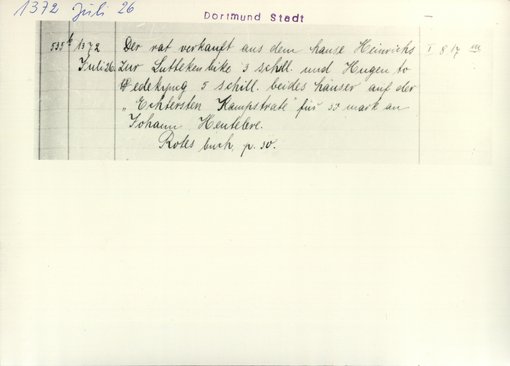 1372 Juli 26
Dortmund Stadt
535 b 1372 Der rat verkauft aus dem hause Heinrichs I 817
Juli 26. zur Luttekenbike 3 schill. und Hugen to
5 schill. beides häuser auf der
„Echtersten Kampstrate" für 50 mark an
Johann
Rotes buch p. 50.